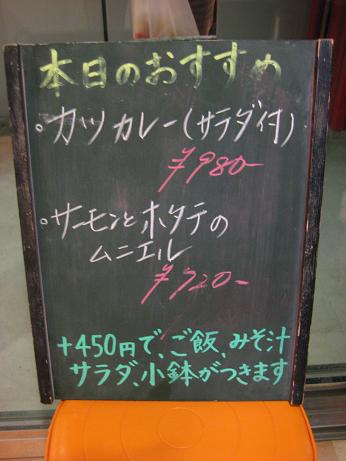 本日のおすすめ
。カツカレー(サラダ付)
¥980-
。サーモンとホタテの
ムニエル
¥720-
+450円で、ご飯、みそ汁
サラダ、小鉢がつきます